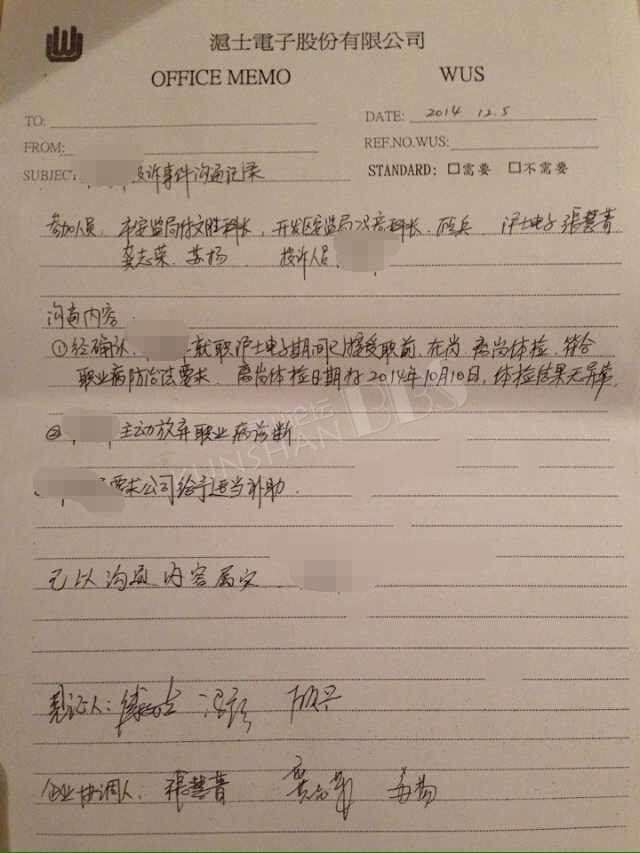 滬士電子股份有限公司
OFFICE MEMO WUS
TO: DATE: 2014 12.5
FROM: REF.NO.WUS:
SUBJECT: 投诉事件沟通记录 STANDARD: □需要 □不需要
参加人员 市安监局付文胜科长、开发区安监局 科长、 沪士电子 張慧菁
龚志荣、苏杨 投诉人员
沟通内容
①经确认, 就职沪士电子期间已接受职前、在岗、离岗体检、符合
职业病防治法要求、离岗体检日期为2014年10月10日,体检结果无异常.
② 主动放弃职业病诊断
要求公司给予适当补助.
已以沟通内容属实
KUNSHAN BBS
見证人:
企业协调人: 張慧菁 苏杨